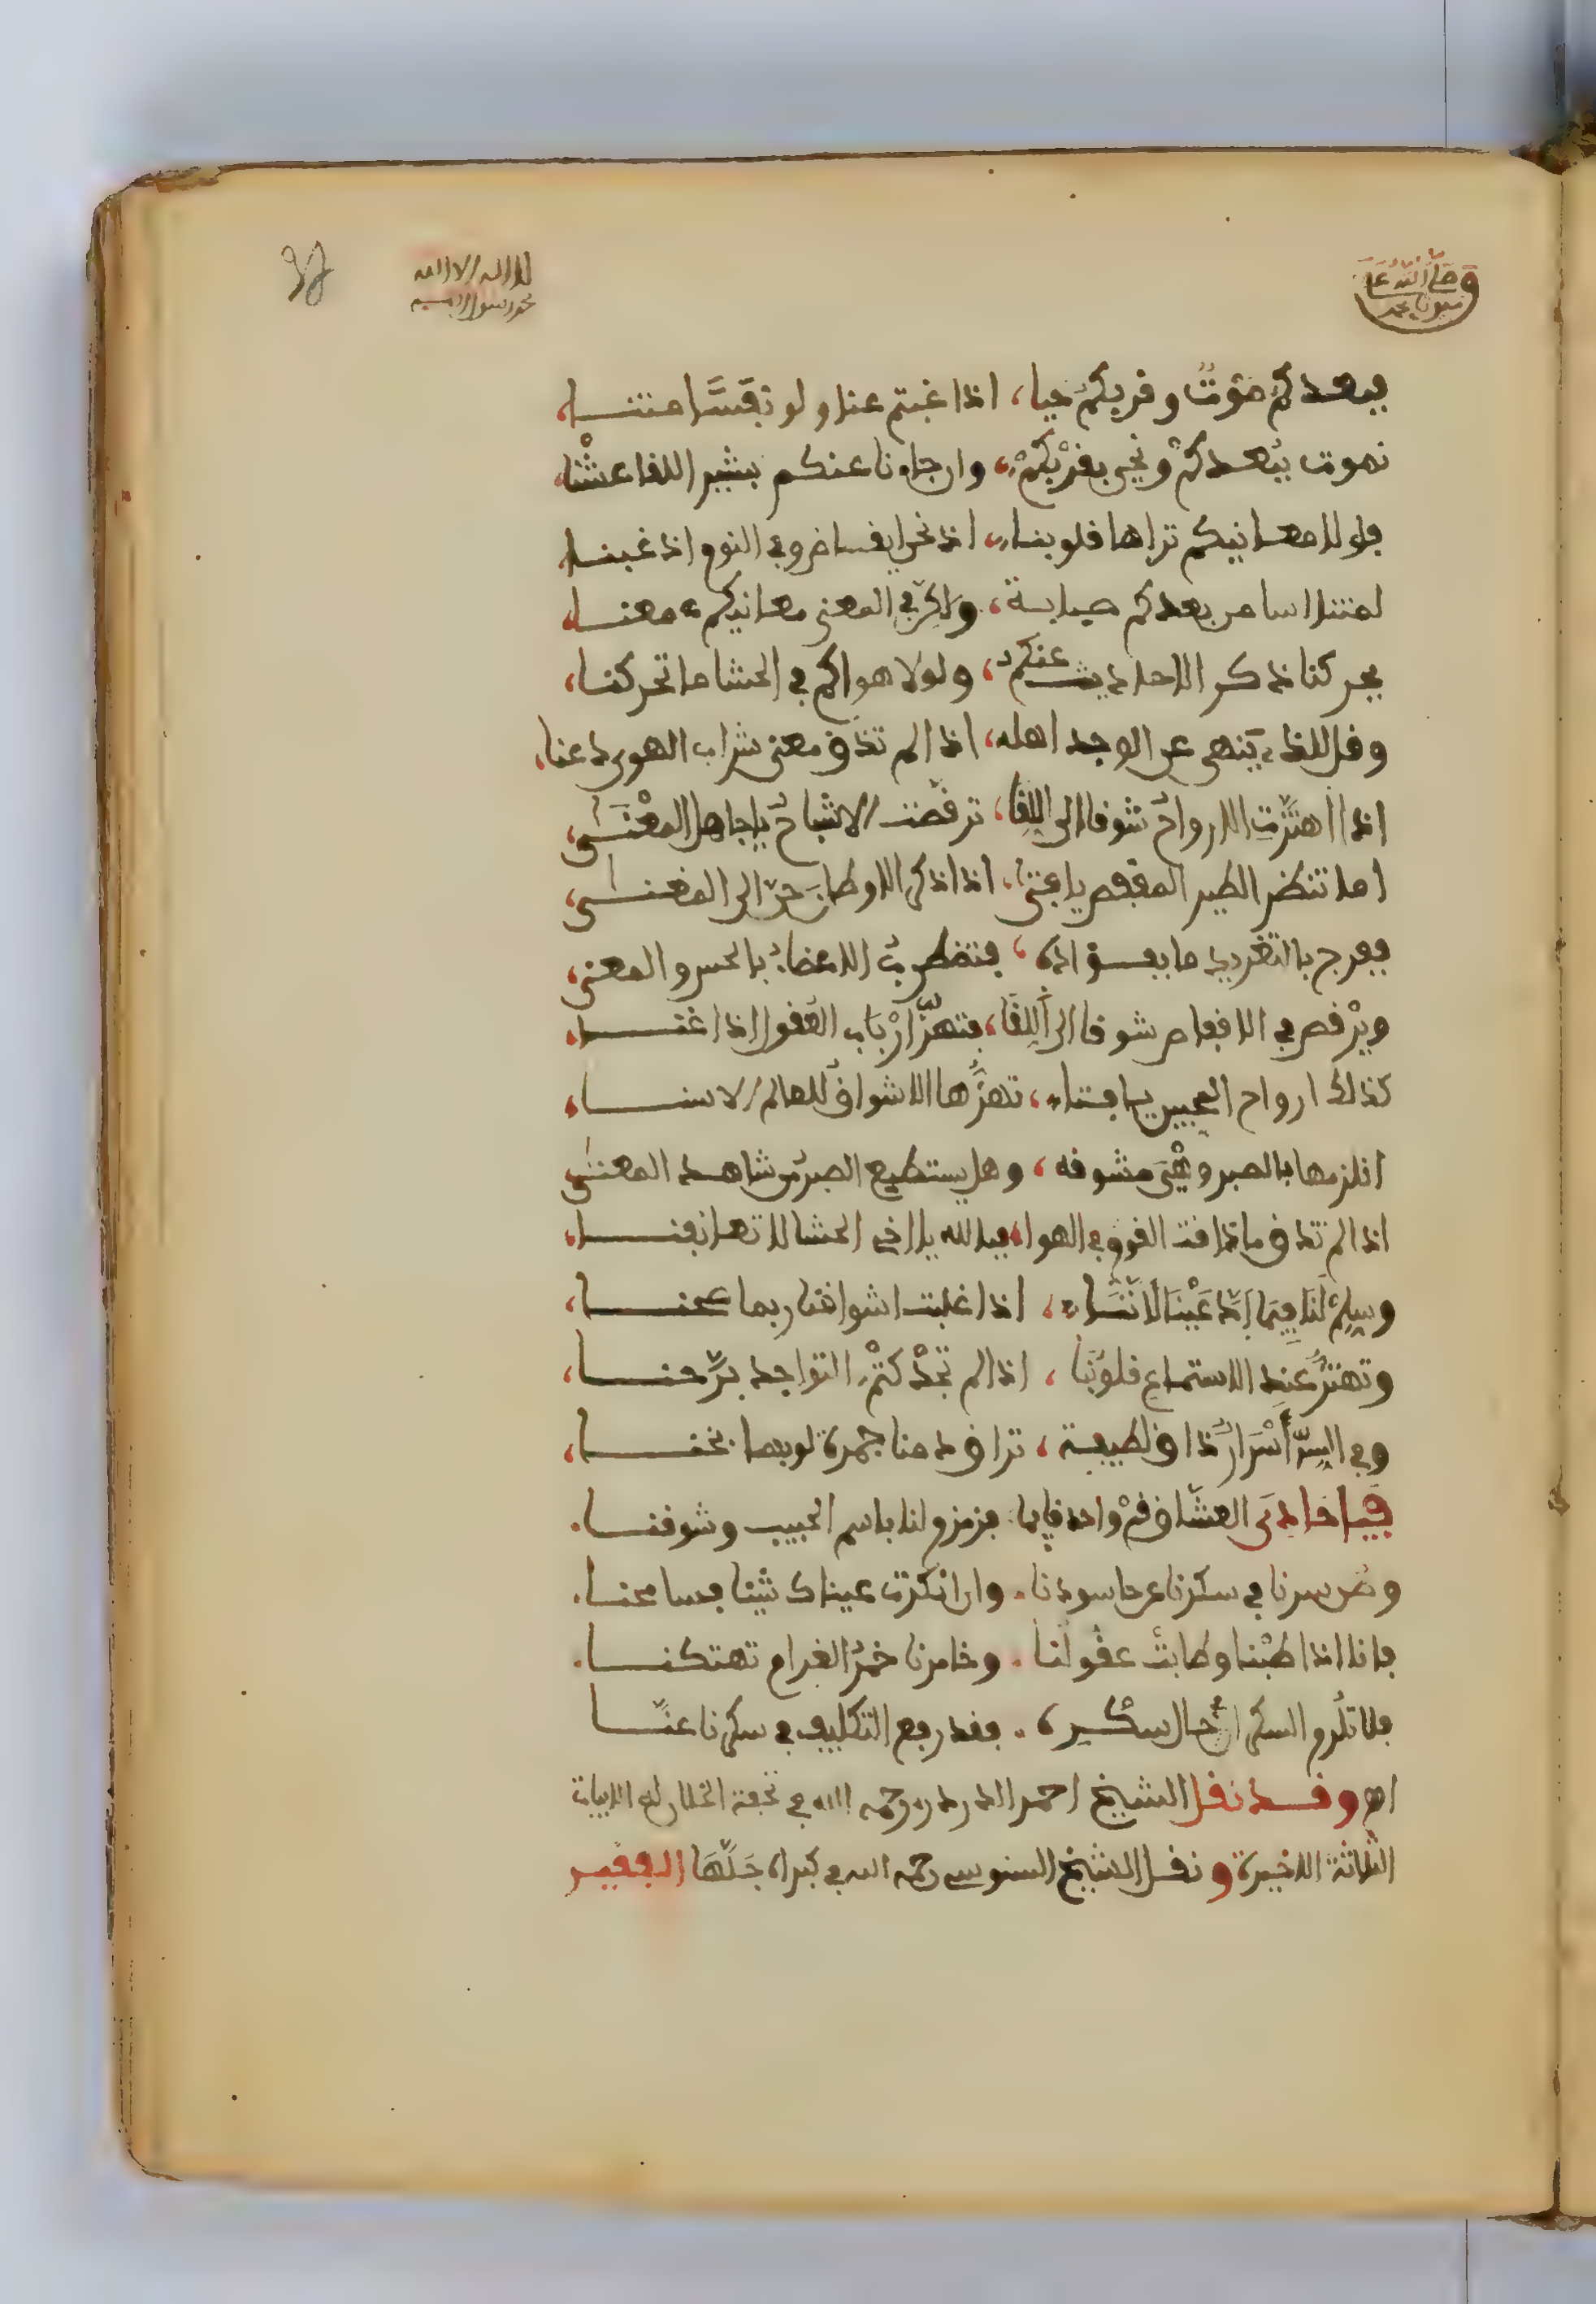 وصلى الله على
سيدنا محمد
لا اله الا الله
محمد رسول الله
فبعدكم موتٌ وقربكم حيا، اذا غبتم عنا ولو نَفَسًا متنا،
نموت ببُعدكمُ ونحيى بقرْبكمْ، وان جاءنا عنكم بشير اللقا عشْنا،
فلولا معانيكم تراها قلوبنا، اذ نحن ايقاض وفي النوم اذ غبنا،
لمتنا اسا من بعدكم صبابة، ولاكنّ في المعنى معانيكم معنا،
يحركنا ذكر الاحاديث عنكم، ولولا هواكم في الحشا ما تحركنا،
وقل للذي يَنهى عن الوجد اهله، اذا لم تذق معنى شراب الهوى دعنا،
اذا اهتزَّت الارواحُ شوقا الى اللِقا، ترقصت الاشباحُ ياجاهل المعْنَى،
اما تنظر الطير المقفص يا فتى، اذا ذكر الاوطانَ حنّ الى المغنى،
يفرج بالتغريد ما بفؤاده، فتضطرب الاعضاءُ بالحس والمعنى،
ويرْقص في الاقفاص شوقا الى اللِقَا، فتهتزّ ارْبَاب العقول اذا غنا،
كذلك ارواح المحبين يا فتى، تهزُّها الاشواقُ للعالم الاسنا،
انلزمها بالصبر وهْيَ مشوقه، وهل يستطيع الصبر من شاهد المعنى
اذا لم تذق ماذاقت القوم في الهوا، فبالله يا اخي الحشا لا تعانفنا،
وسلمْ لَنَا فِيمَا ادَّعَيْنَا لأنَّنَا، اذا غلبت اشواقنا ربما صحنا،
وتهتزُّ عِند الاستماع قلوبُنا، اذا لم نجدْ كتْم التواجد برَّحنا،
وفي السِّرّ أسْرَارٌ ذاق لطيفة، تراق دمنا جهرة لو بها بحنا،
فيا حادىَ العشَّاق قمْ واحد قايما، فزمزم لنا باسم الحبيب وشوقنا.
وصُن سرنا في سكرنا عن حاسودنا. وان انكرت عيناك شيْئا فسامحنا.
فانا اذا طبْنا وطابتْ عقولنا. وخامرنا خمرُ الغرام تهتكنا.
فلا تلُم السكران حال سكره. فقد رفع التكليف في سكرنا عنَّا
اهـ وقد نقل الشيخ احمد الدردير رحمه الله في تحفة الخلان له الابيات
الثلاثة الاخيرة ونقل الشيخ السنوسي رحمه الله في كبراه جَلّهَا الفقير